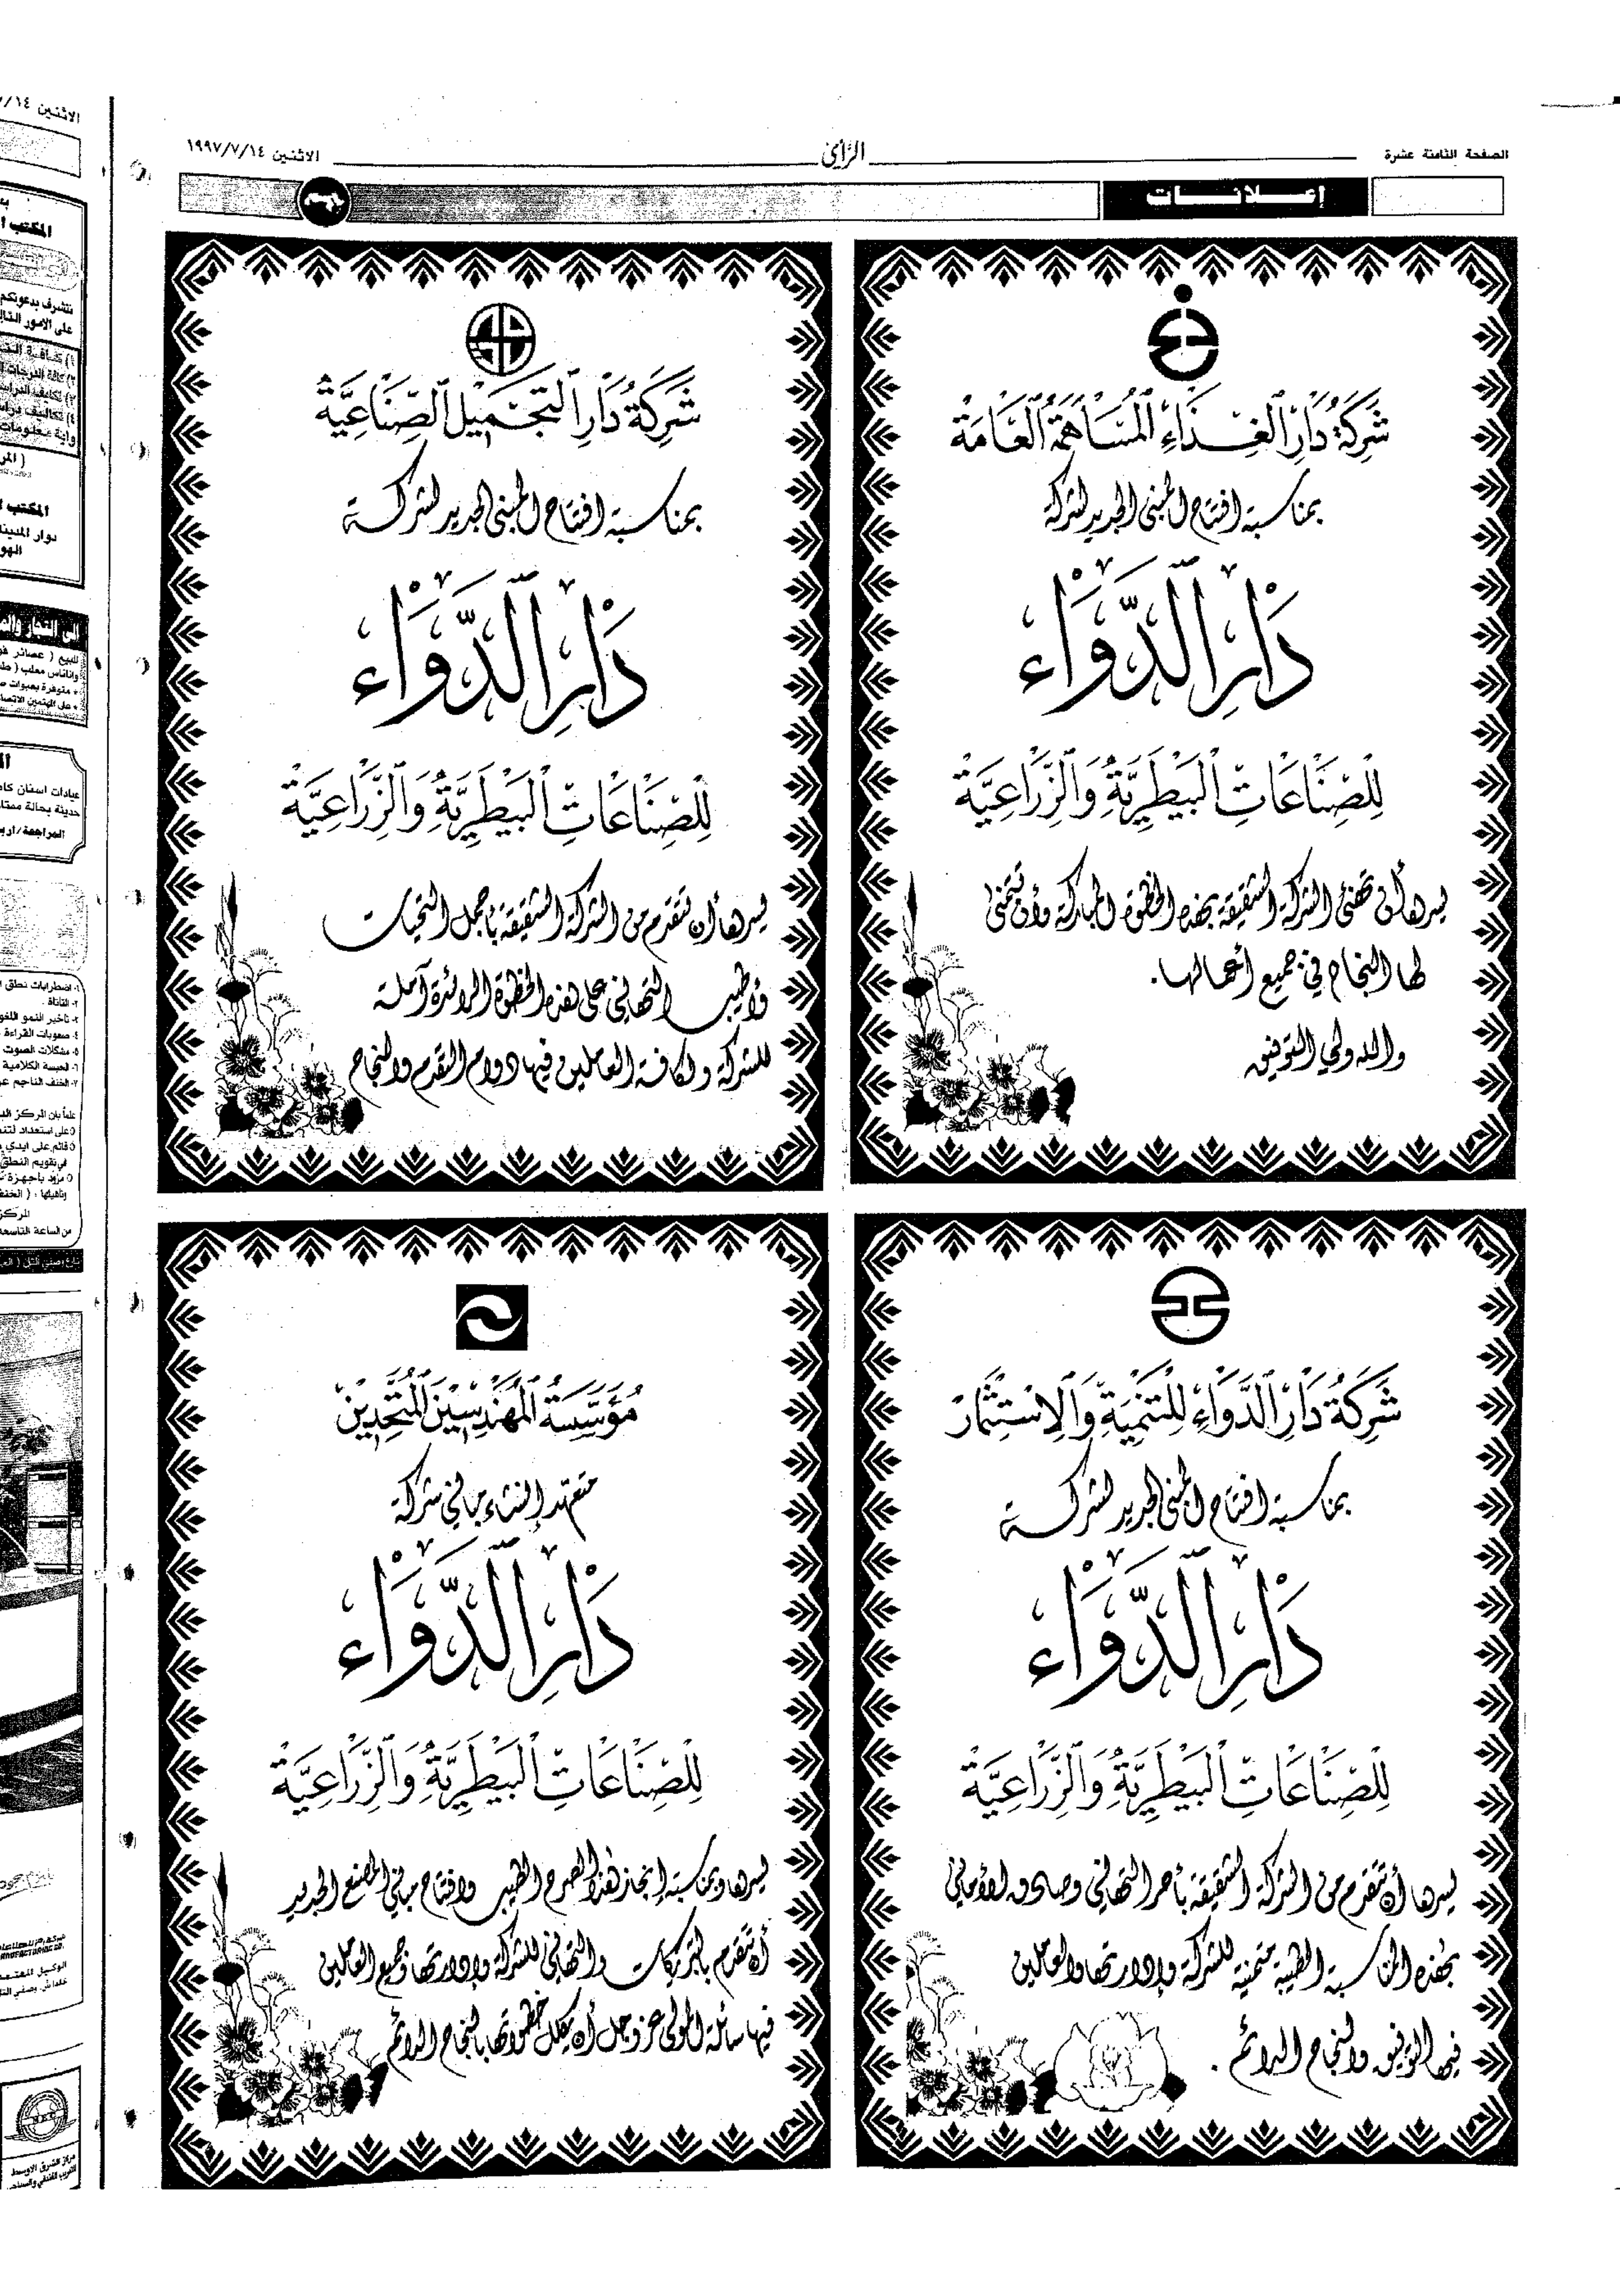 الصفحة الثامنة عشرة
الرأي
الاثنين ١٩٩٧/٧/١٤
إعلانات
شَرِكَةُ دَارِ الغِذَاءِ المُسَاهَمَةُ العَامَةُ
بمناسبة افتتاح المبنى الجديد لشركة
دَارِ الدَّوَاءِ
لِلصِّنَاعَاتِ البَيْطَرِيَّةِ وَالزِّرَاعِيَّةِ
يسرها أن تهنئ الشركة الشقيقة بهذه الخطوة المباركة وأن تتمنى
لها النجاح في جميع أعمالها.
والله ولي التوفيق
شَرِكَةُ دَارِ التَجْمِيْلِ الصِّنَاعِيَّةُ
بمناسبة افتتاح المبنى الجديد لشركة
دَارِ الدَّوَاءِ
لِلصِّنَاعَاتِ البَيْطَرِيَّةِ وَالزِّرَاعِيَّةِ
يسرها أن تتقدم من الشركة الشقيقة بأجمل التحيات
وأطيب التهاني على هذه الخطوة الرائدة آملة
للشركة ولكافة العاملين فيها دوام التقدم والنجاح
شَرِكَةُ دَارِ الدَّوَاءِ لِلتَنْمِيَةِ وَالِاسْتِثْمَارْ
بمناسبة افتتاح المبنى الجديد لشركة
دَارِ الدَّوَاءِ
لِلصِّنَاعَاتِ البَيْطَرِيَّةِ وَالزِّرَاعِيَّةِ
يسرها أن تتقدم من الشركة الشقيقة بأحر التهاني وصادق الأماني
بهذه المناسبة الطيبة متمنية للشركة وإدارتها والعاملين
فيها التوفيق والنجاح الدائم.
مُؤَسَّسَةُ المُهَنْدِسِيْنَ المُتَّحِدِيْنْ
متعهد إنشاء مباني شركة
دَارِ الدَّوَاءِ
لِلصِّنَاعَاتِ البَيْطَرِيَّةِ وَالزِّرَاعِيَّةِ
يسرها وبمناسبة إنجاز هذا الصرح الطيب وافتتاح مباني المصنع الجديد
أن تتقدم بالتبريكات والتهاني للشركة وإدارتها وجميع العاملين
فيها سائلة المولى عز وجل أن يكلل خطواتها بالنجاح الدائم